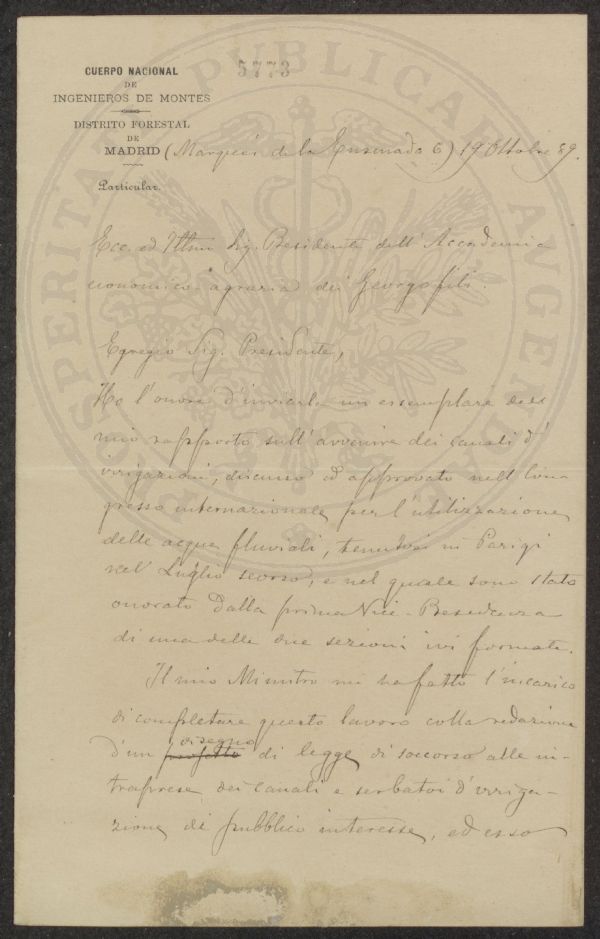 5773
CUERPO NACIONAL
DE
INGENIEROS DE MONTES
DISTRITO FORESTAL
DE
MADRID (Marqués de la Ensenada 6) 19 Ottobre 89.
Particular.
PROSPERITATI PUBLICAE AUGENDAE
Ecc. ed Illmo Sig. Presidente dell' Accademia
economico-agraria dei Georgofili.
Egregio Sig. Presidente,
Ho l'onore d'inviarle un esemplare del
mio rapporto sull'avvenire dei canali d'
irrigazioni, discusso ed approvato nell Con-
gresso internazionale per l'utilizzazione
delle acque fluviali, tenutosi in Parigi
nel Luglio scorso, e nel quale sono stato
onorato dalla prima Vice-Presidenza
di una delle due sezioni ivi formate.
Il mio Ministro mi ha fatto l'incarico
di completare questo lavoro colla redazione
disegno
d'un progetto di legge di soccorso alle in-
traprese dei canali e serbatoi d'irriga-
zione di pubblico interesse, ed esso